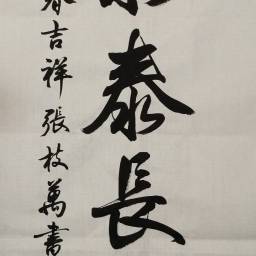 泰長
春吉祥張枝萬書